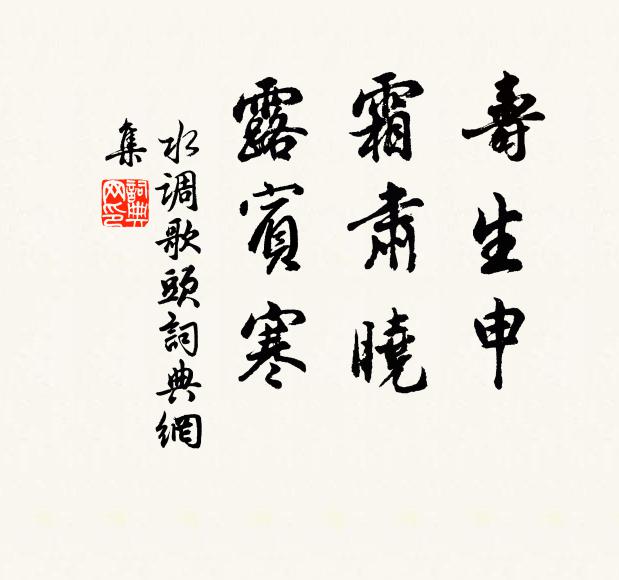 壽生申
霜肅曉
露賓寒
水调歌頭詞典網
集
詞典
网印